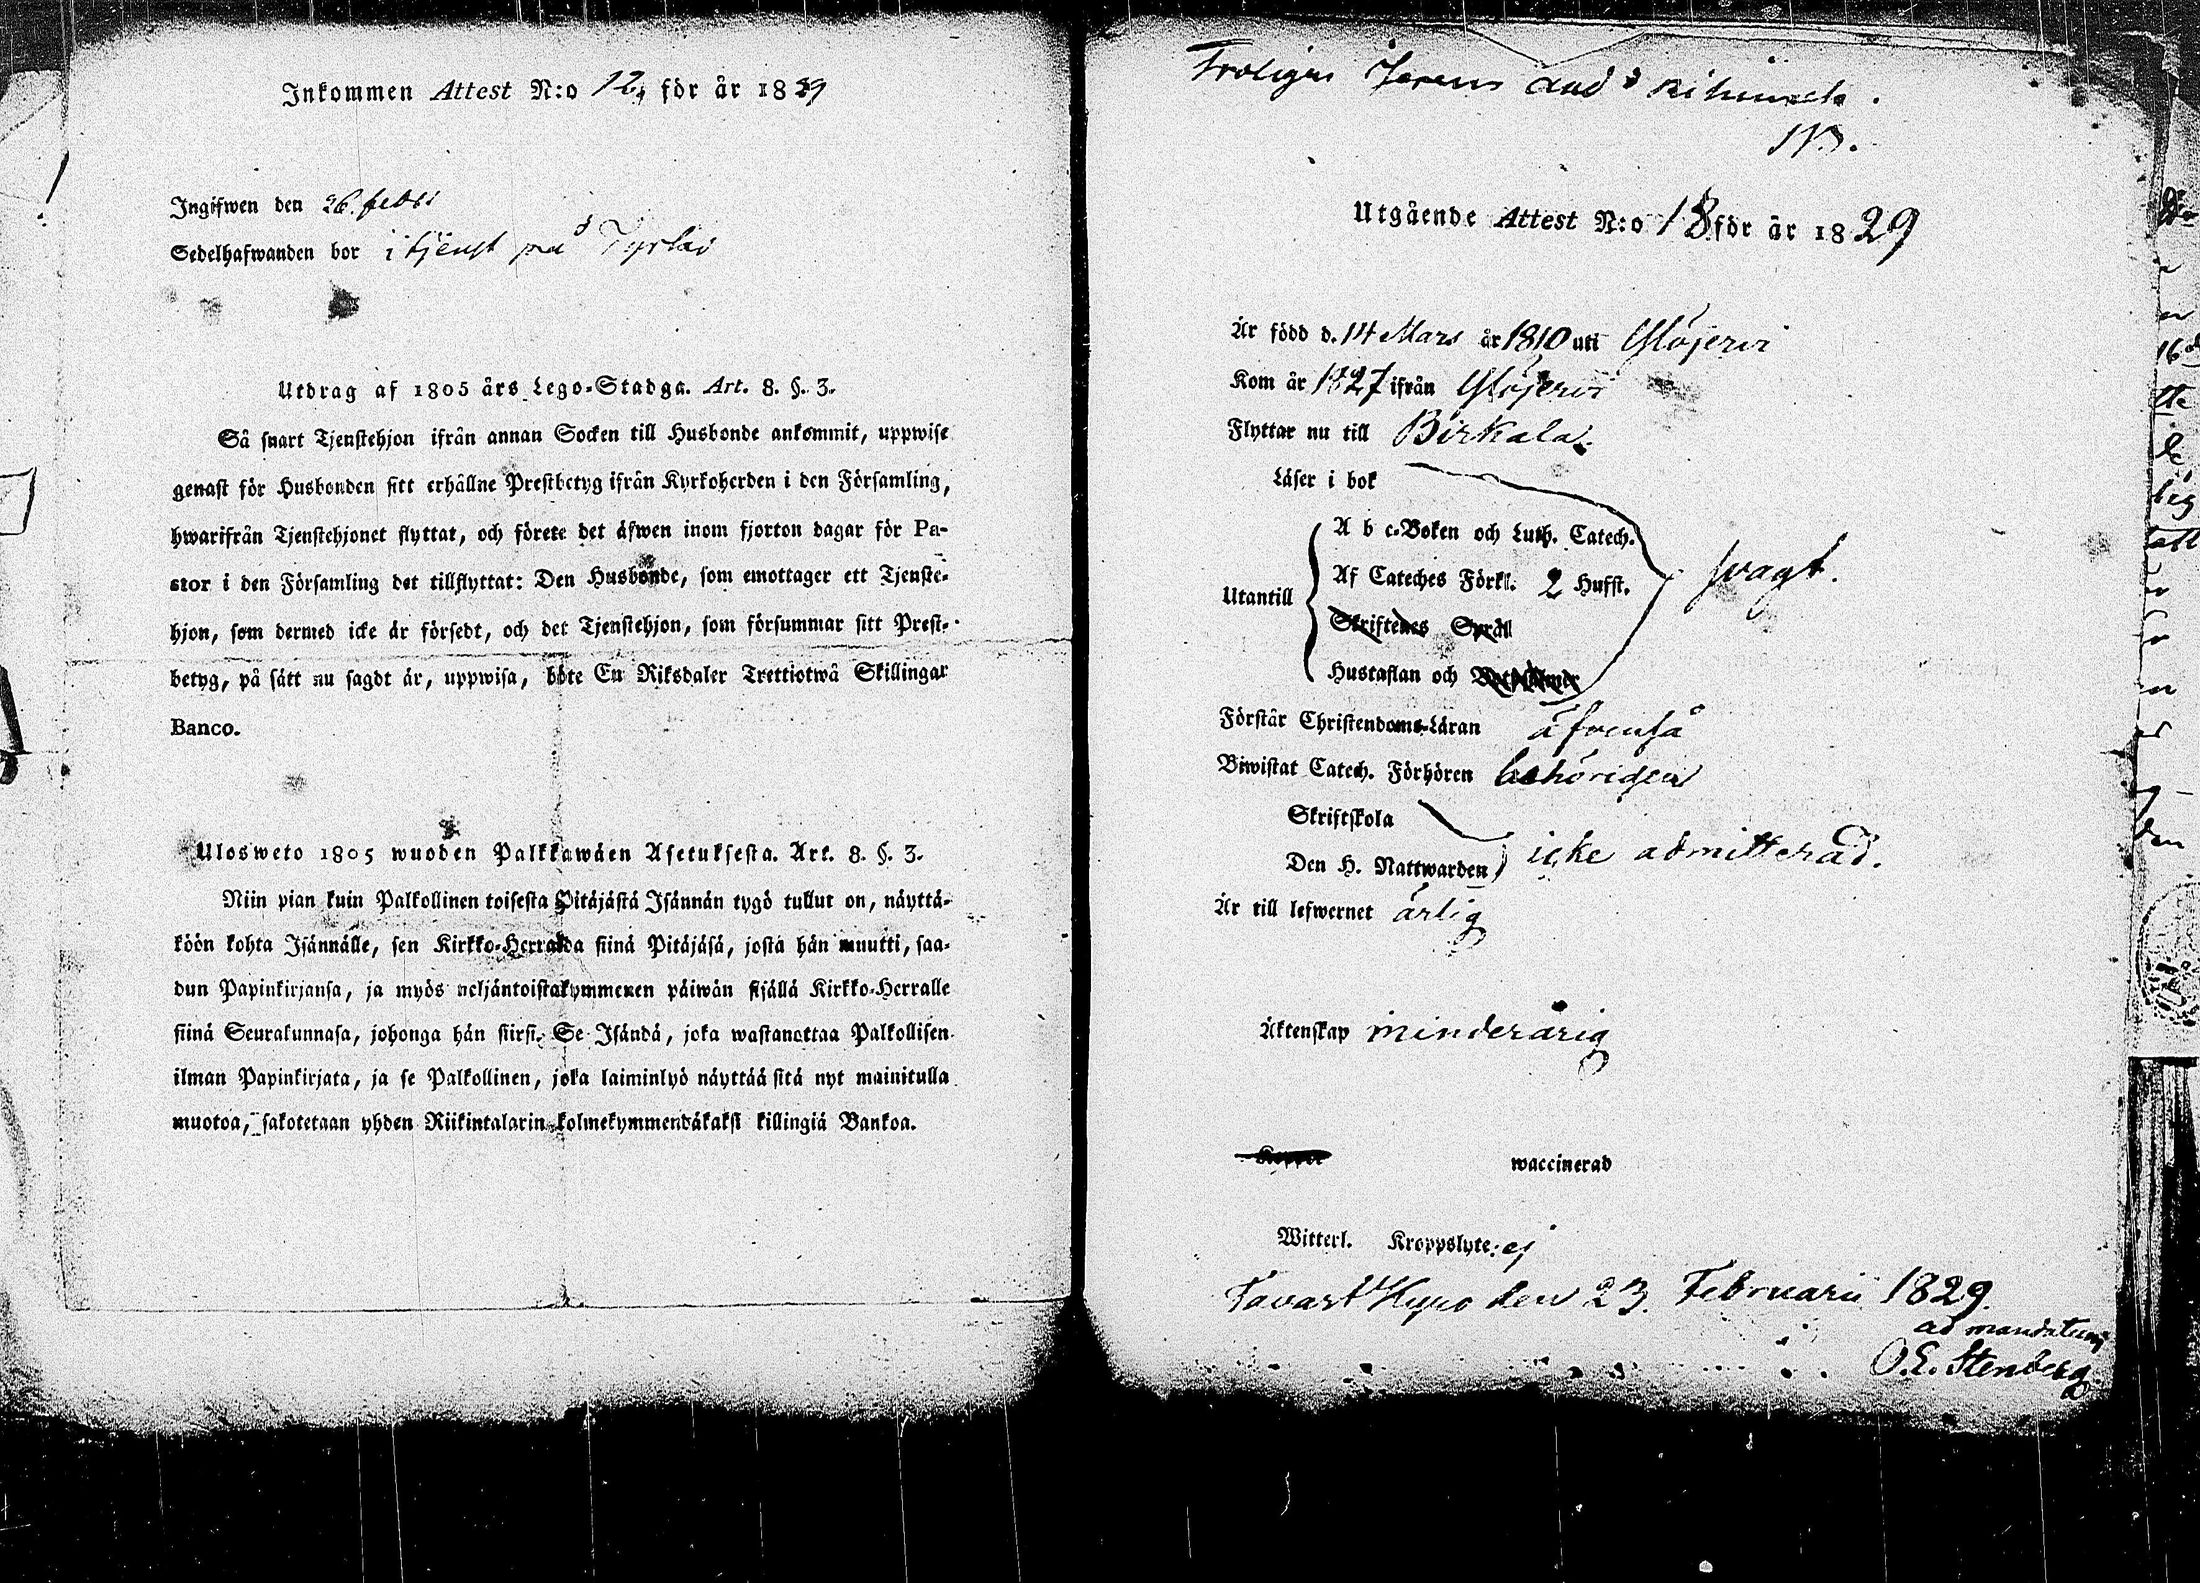 Inkommen Attest N:o 12, för år 1829
Ingifwen den 26. febri
Sedelhafwanden bor i tjenst på
Utdrag af 1805 års Lego-Stadga. Art. 8. §. 3.
Så snart Tjenstehjon ifrån annan Socken till Husbonde ankommit, uppwise
genast för Husbonden sitt erhållne Prestbetyg ifrån Kyrkoherden i den Församling,
hwarifrån Tjenstehjonet flyttat, och förete det äfwen inom fjorton dagar för Pa-
stor i den Församling det tillflyttat: Den Husbonde, som emottager ett Tjenste-
hjon, som dermed icke är försedt, och det Tjenstehjon, som försummar sitt Prest-
betyg, på sätt nu sagdt är, uppwisa, böte En Riksdaler Trettiotwå Skillingar
Banco.
Ulosweto 1805 wuoden Palkkawäen Asetuksesta. Art. 8. §. 3.
Niin pian kuin Palkollinen toisesta Pitäjästä Isännän tygö tullut on, näyttä-
köön kohta Isännälle, sen Kirkko-Herralda siinä Pitäjäsä, josta hän muutti, saa-
dun Papinkirjansa, ja myös neljäntoistakymmenen päiwän sisällä Kirkko-Herralle
siinä Seurakunnasa, johonga hän siirsi. Se Isändä, joka wastanottaa Palkollisen
ilman Papinkirjata, ja se Palkollinen, joka laiminlyö näyttää sitä nyt mainitulla
muotoa, sakotetaan yhden Riikintalarin kolmekymmendäkaksi killingiä Bankoa.
Utgående Attest N:o 18 för år 1829
Är född d. 14 Mars år 1810 uti Ylöjervi
Kom år 1827 ifrån Ylöjervi
Flyttar nu till Birkala.
Läser i bok
A b c-Boken och Luth. Catech.
Af Cateches Förkl. 2 Hufst. svagt.
Utantill
Skriftenes Språk
Hustaflan och
Förstår Christendoms-Läran äfvenså
Biwistat Catech. Förhören behörigen
Skriftskola
Den H. Nattwarden icke admitterad.
Är till lefwernet ärlig
Äktenskap minderårig
waccinerad
Witterl. Kroppslyte: ej
Tavast Kyro den 23. Februarii 1829.
ad mandatum
O. E. Stenberg